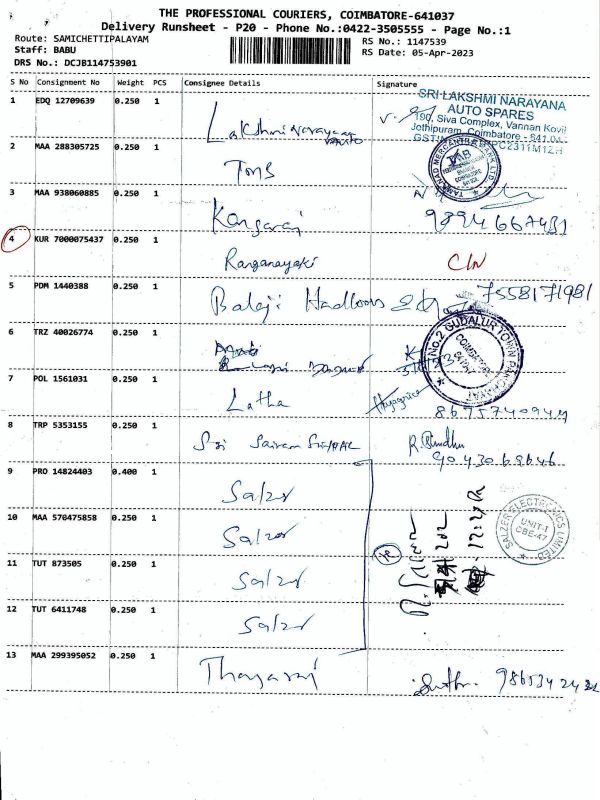 THE PROFESSIONAL COURIERS, COIMBATORE-641037
Delivery Runsheet - P20 - Phone No.:0422-3505555 - Page No.:1
Route: SAMICHETTIPALAYAM
Staff: BABU
DRS No.: DCJB114753901
RS No.: 1147539
RS Date: 05-Apr-2023
S No Consignment No Weight PCS Consignee Details Signature
1 EDQ 12709639 0.250 1 Lakshmi Narayana
SRI LAKSHMI NARAYANA
AUTO SPARES
190, Siva Complex, Vannan Kovil
Jothipuram, Coimbatore - 641
2 MAA 288305725 0.250 1 TMB
TAMILNAD MERCANTILE BANK LTD
3 MAA 938060885 0.250 1 Kangaraj
4 KUR 7000075437 0.250 1 Ranganayaki
5 PDM 1440388 0.250 1 Balaji 7558171981
6 TRZ 40026774 0.250 1
No.2 GUDALUR TOWN PANCHAYAT
COIMBATORE
7 POL 1561031 0.250 1 Latha
8 TRP 5353155 0.250 1 Sri Sairam
R. Bindhu
9043069646
9 PRO 14824403 0.400 1 Salzer
10 MAA 570475858 0.250 1 Salzer
SALZER ELECTRONICS LIMITED
UNIT-I
CBE-47
11 TUT 873505 0.250 1 Salzer
12 TUT 6411748 0.250 1 Salzer
13 MAA 299395052 0.250 1 Thangaraj